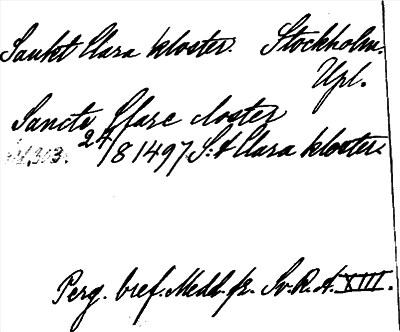 Sankt Clara kloster. Stockholm.
Upl.
Sancte Clare closter
303. 24/8 1497 S:t Clara kloster.
Perg. bref. Medd. fr. Sv. R. A. XIII.